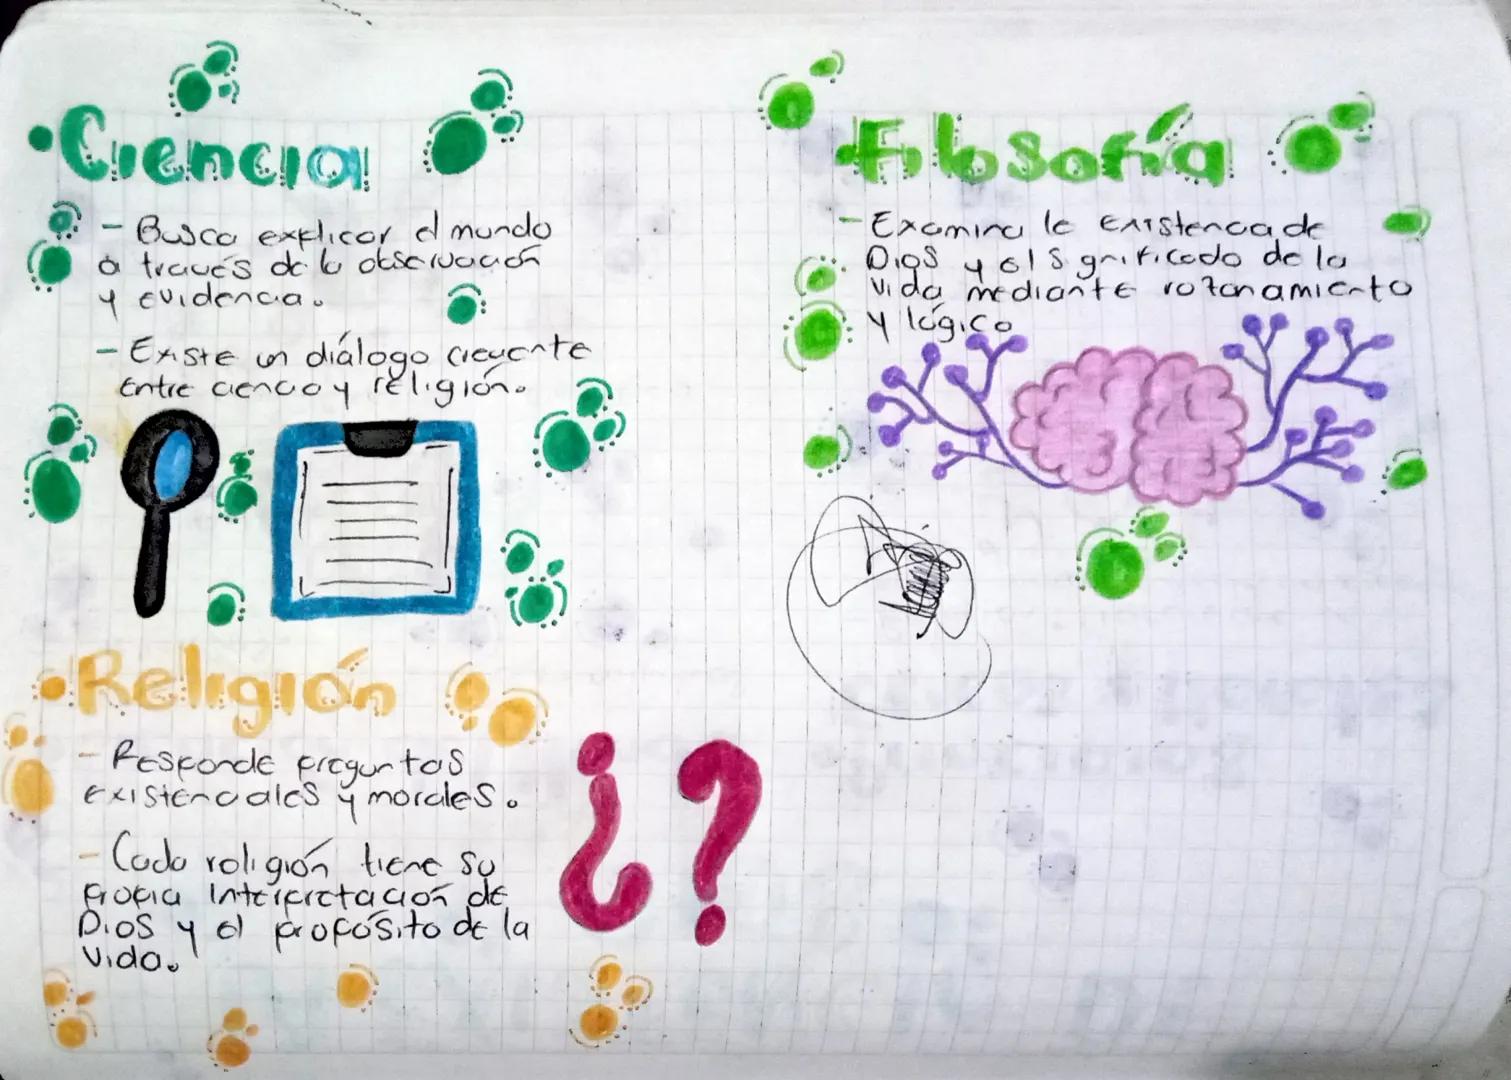 • Ciencia
- Busca explicar el mundo
a través de la observación
y evidencia.
- Existe un diálogo creciente
entre ciencia y religión.
• Religión
- Responde preguntas
existenciales y morales.
- Cada religión tiene su
propia interpretación de
Dios y el propósito de la
vida.
¿?
• Filosofía
- Examina la existencia de
Dios y el significado de la
vida mediante razonamiento
y lógico